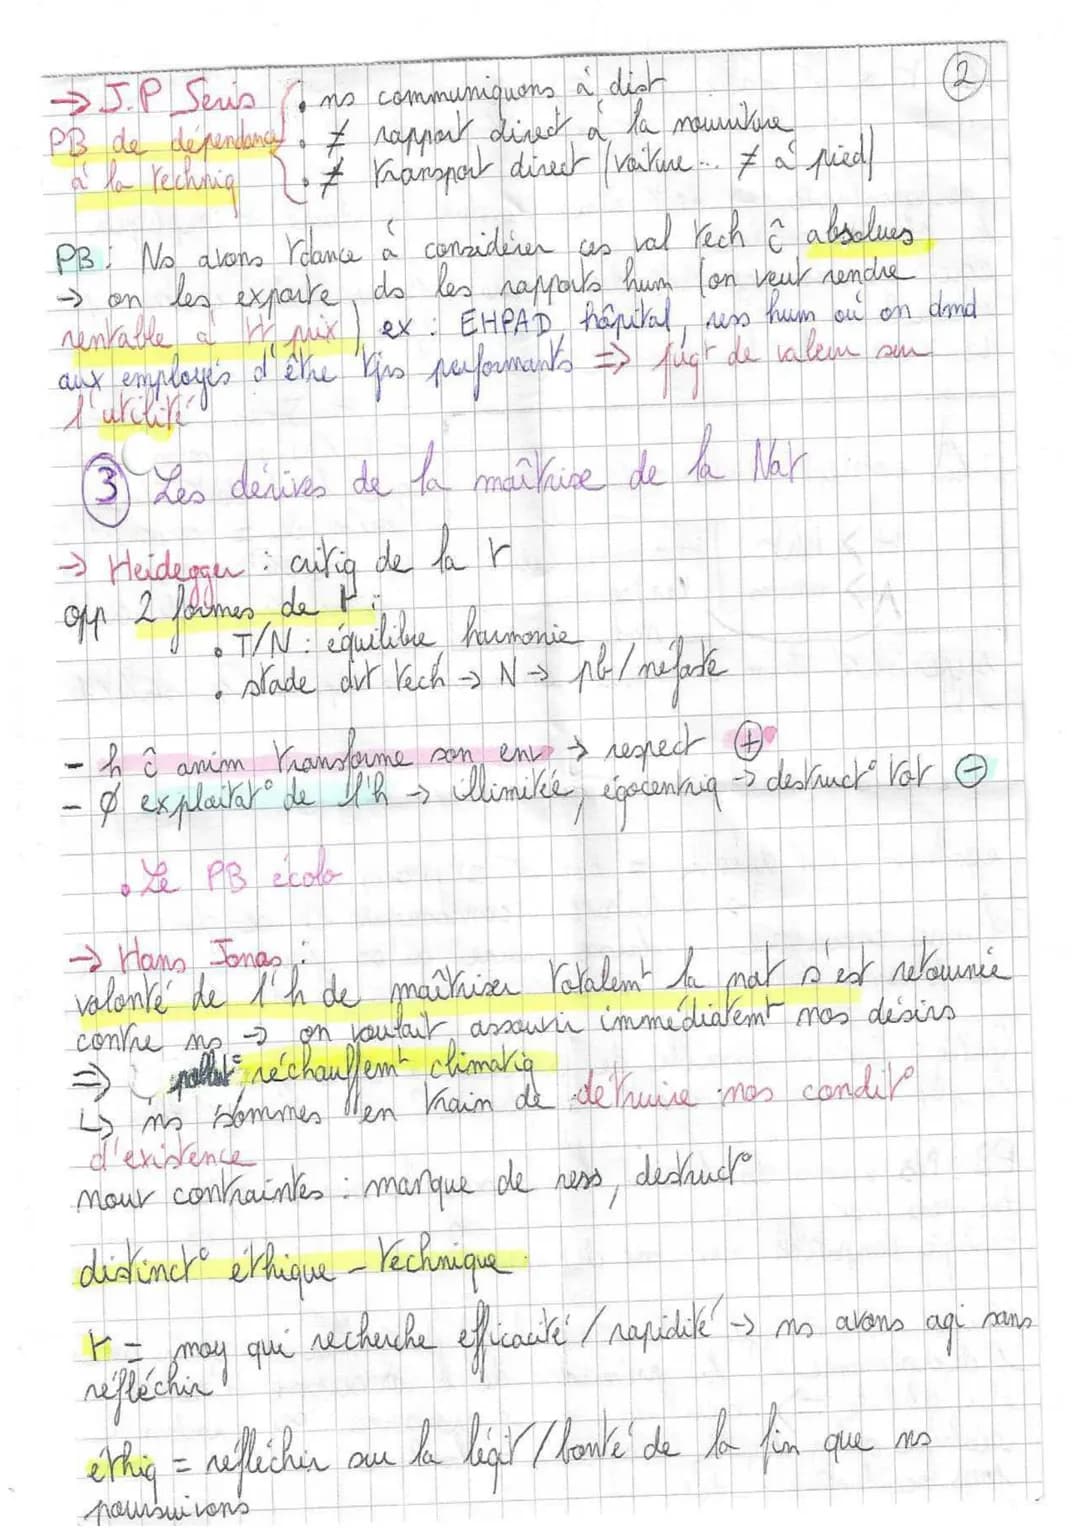 ②
→ J.P Seris • ns communiquons à dist
PB de dépendance • ≠ rapport direct à la nourriture
à la techniq • ≠ transport direct (voiture... ≠ à pied)
PB : Ns avons tdance à considérer ces val tech ĉ absolues
→ on les exporte ds les rapports hum (on veut rendre
rentable à tt prix) ex : EHPAD, hôpital, ress hum où on dmd
aux employés d'être tjrs performants ⇒ jugt de valeur sur
l'utilité
③ Les dérives de la maîtrise de la Nat
→ Heidegger : critiq de la t
opp 2 formes de t :
• T/N : équilibre, harmonie
• stade dvt tech → N → pb/néfaste
- h ĉ anim transforme son env → respect ⊕
- Ø exploitat° de l'h → illimitée, égocentriq → destruct° tot ⊖
• Le PB écolo
→ Hans Jonas :
volonté de l'h de maîtriser totalemt la nat s'est retournée
contre ns → on voulait assouvir immédiatemt nos désirs
⇒ pollut° réchauffemt climatiq
↳ ns sommes en train de détruire nos condit°
d'existence
nouv contraintes : manque de ress, destruct°
distinct° éthique - technique
t = moy qui recherche efficacité / rapidité → ns avons agi sans
réfléchir
éthiq = réfléchir sur la légit / bonté de la fin que ns
poursuivons